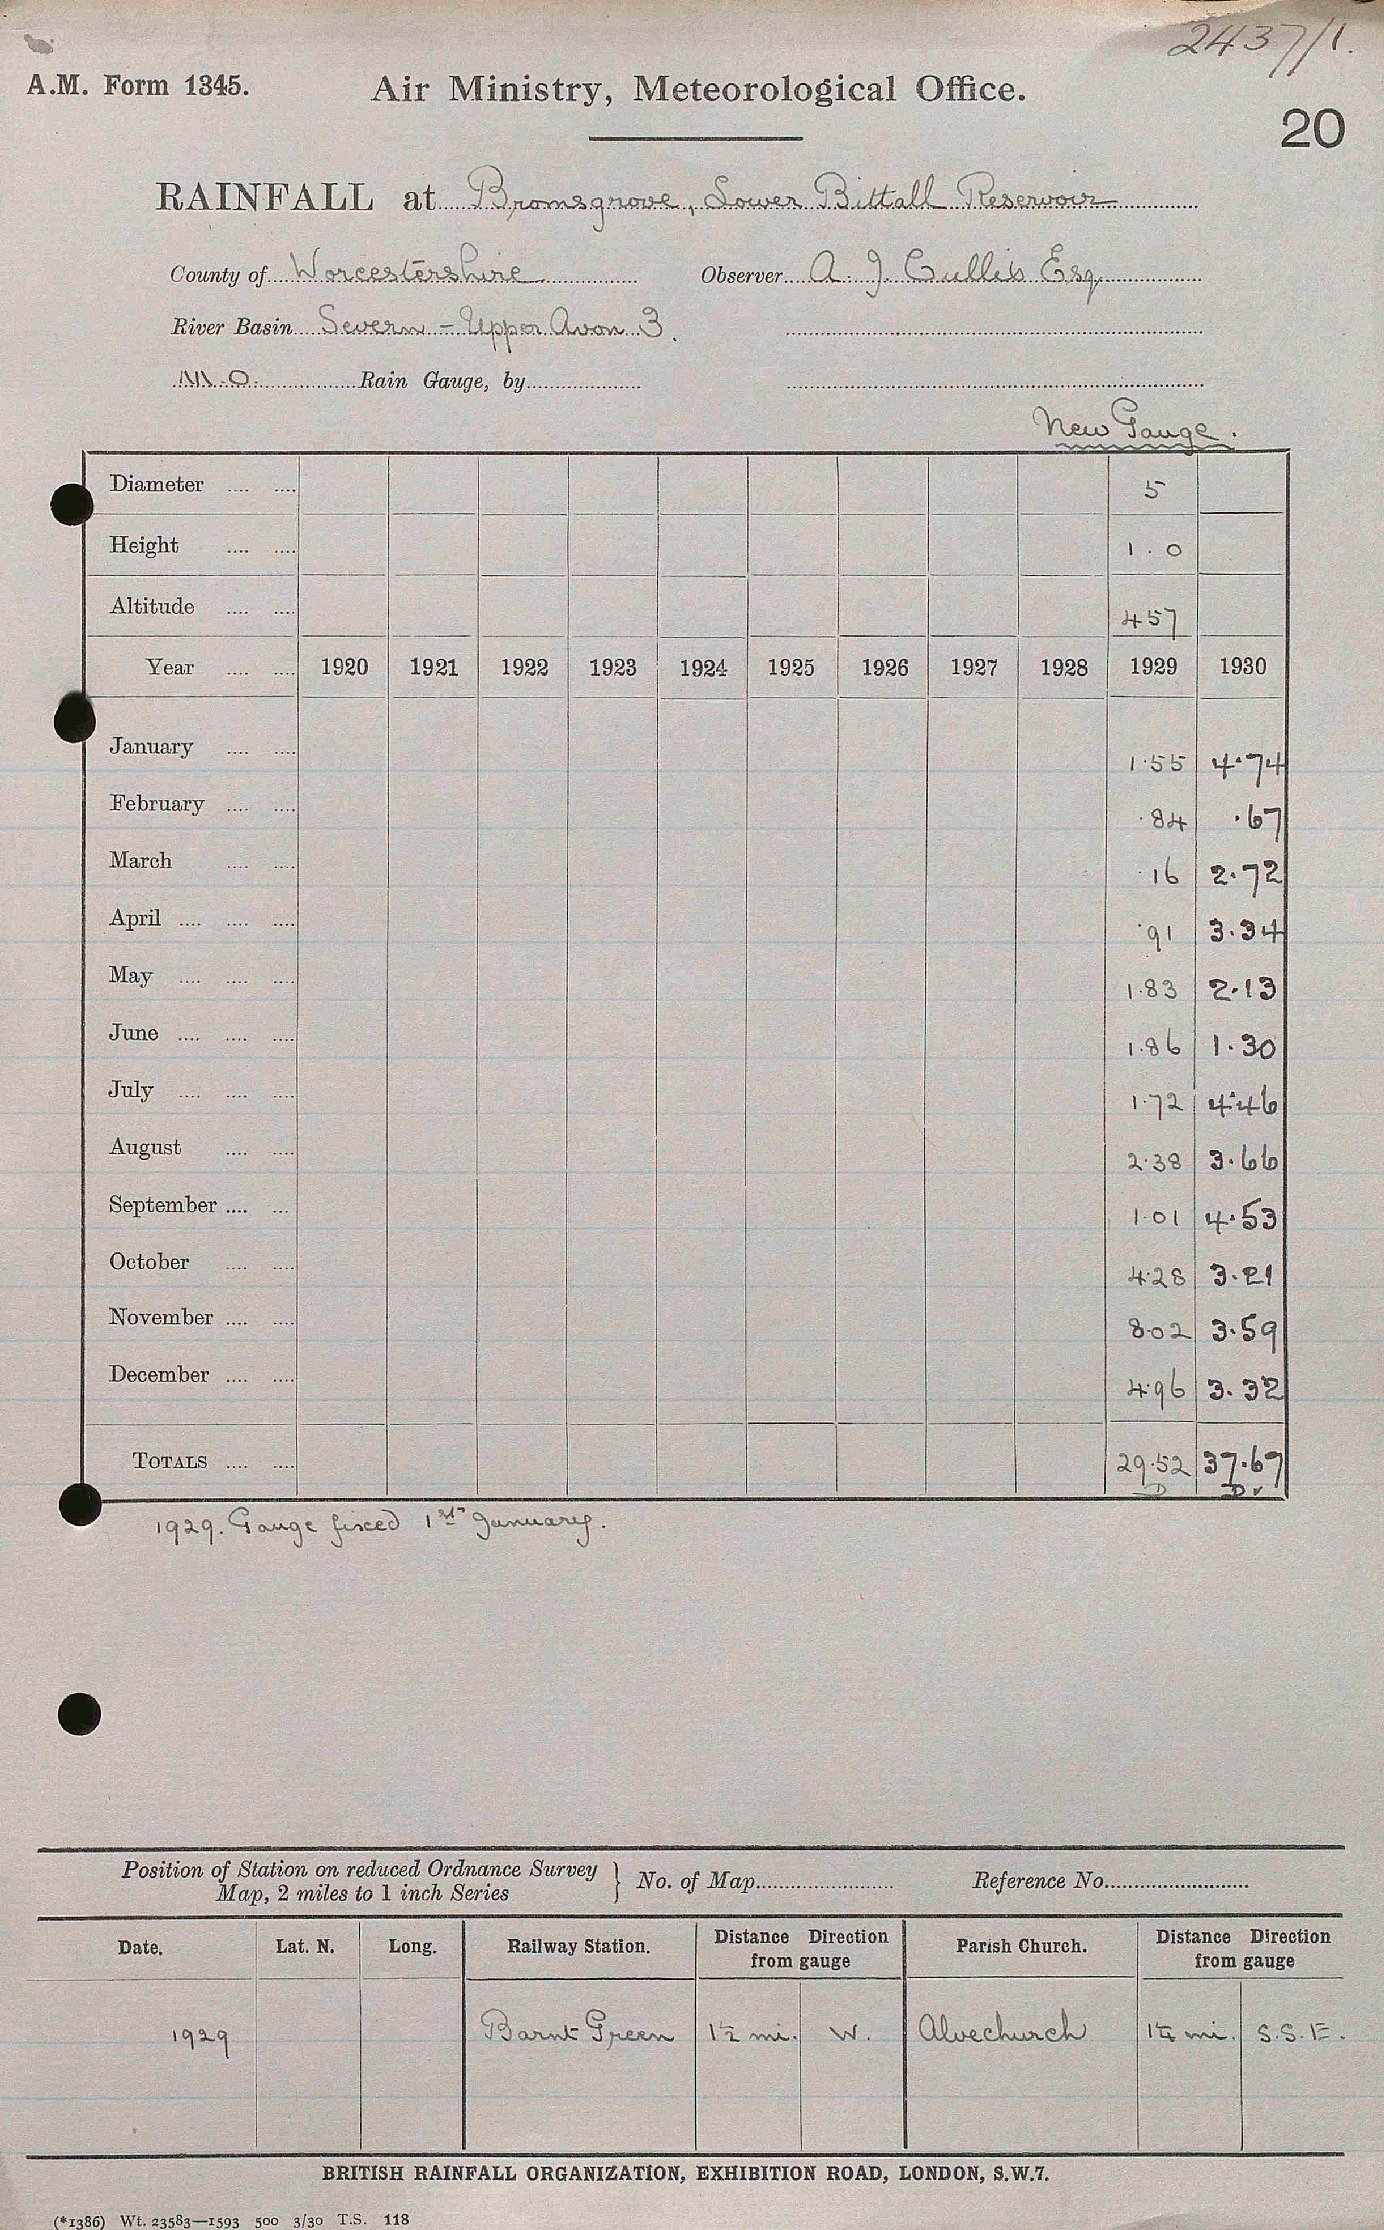 2437/1.
A.M. Form 1345. Air Ministry, Meteorological Office.
20
RAINFALL at Bromsgrove, Lower Bittall Reservoir
County of Worcestershire Observer A. J. Cullis Esq.
River Basin Severn - Upper Avon 3.
M.O. Rain Gauge, by
New Gauge.
Diameter .... .... 5
Height .... .... 1.0
Altitude .... .... 457
Year .... .... 1920 1921 1922 1923 1924 1925 1926 1927 1928 1929 1930
January .... .... 1.55 4.74
February .... .... .84 .67
March .... .... 16 2.72
April .... .... .... .91 3.34
May .... .... .... 1.83 2.13
June .... .... .... 1.86 1.30
July .... .... .... 1.72 4.46
August .... .... 2.38 3.66
September .... ... 1.01 4.53
October .... .... 4.28 3.21
November .... .... 8.02 3.59
December .... .... 4.96 3.32
TOTALS .... .... 29.52 37.67
D D ✓
1929. Gauge fixed 1st January.
Position of Station on reduced Ordnance Survey } No. of Map Reference No.
Map, 2 miles to 1 inch Series
Date. Lat. N. Long. Railway Station. Distance Direction from gauge Parish Church. Distance Direction from gauge
1929 Barnt Green 1½ mi. W. Alvechurch 1¼ mi. S.S.E.
BRITISH RAINFALL ORGANIZATION, EXHIBITION ROAD, LONDON, S.W.7.
(*1386) Wt. 23583—1593 500 3/30 T.S. 118